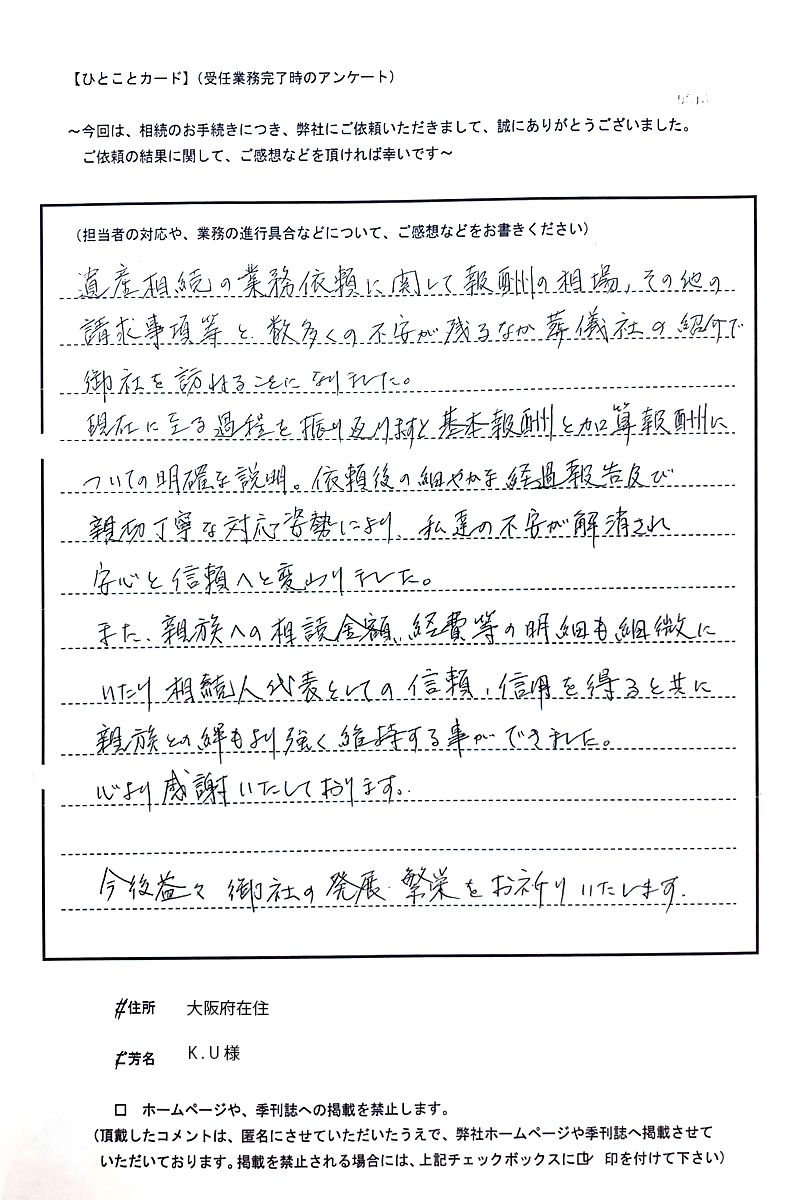 【ひとことカード】(受任業務完了時のアンケート)
～今回は、相続のお手続きにつき、弊社にご依頼いただきまして、誠にありがとうございました。
ご依頼の結果に関して、ご感想などを頂ければ幸いです～
(担当者の対応や、業務の進行具合などについて、ご感想などをお書きください)
遺産相続の業務依頼に関して報酬の相場，その他の
請求事項等と、数多くの不安が残るなか葬儀社の紹介で
御社を訪ねることになりました。
現在に至る過程を振り返りますと基本報酬と加算報酬に
ついての明確な説明。依頼後の細やかな経過報告及び
親切丁寧な対応姿勢により、私達の不安が解消され
安心と信頼へと変わりました。
また、親族への相談金額、経費等の明細も細微に
いたり相続人代表としての信頼、信用を得ると共に
親族との絆もより強く維持する事ができました。
心より感謝いたしております。
今後益々御社の発展、繁栄をお祈りいたします。
住所 大阪府在住
芳名 K.U様
□ ホームページや、季刊誌への掲載を禁止します。
(頂戴したコメントは、匿名にさせていただいたうえで、弊社ホームページや季刊誌へ掲載させて
いただいております。掲載を禁止される場合には、上記チェックボックスに☑ 印を付けて下さい)